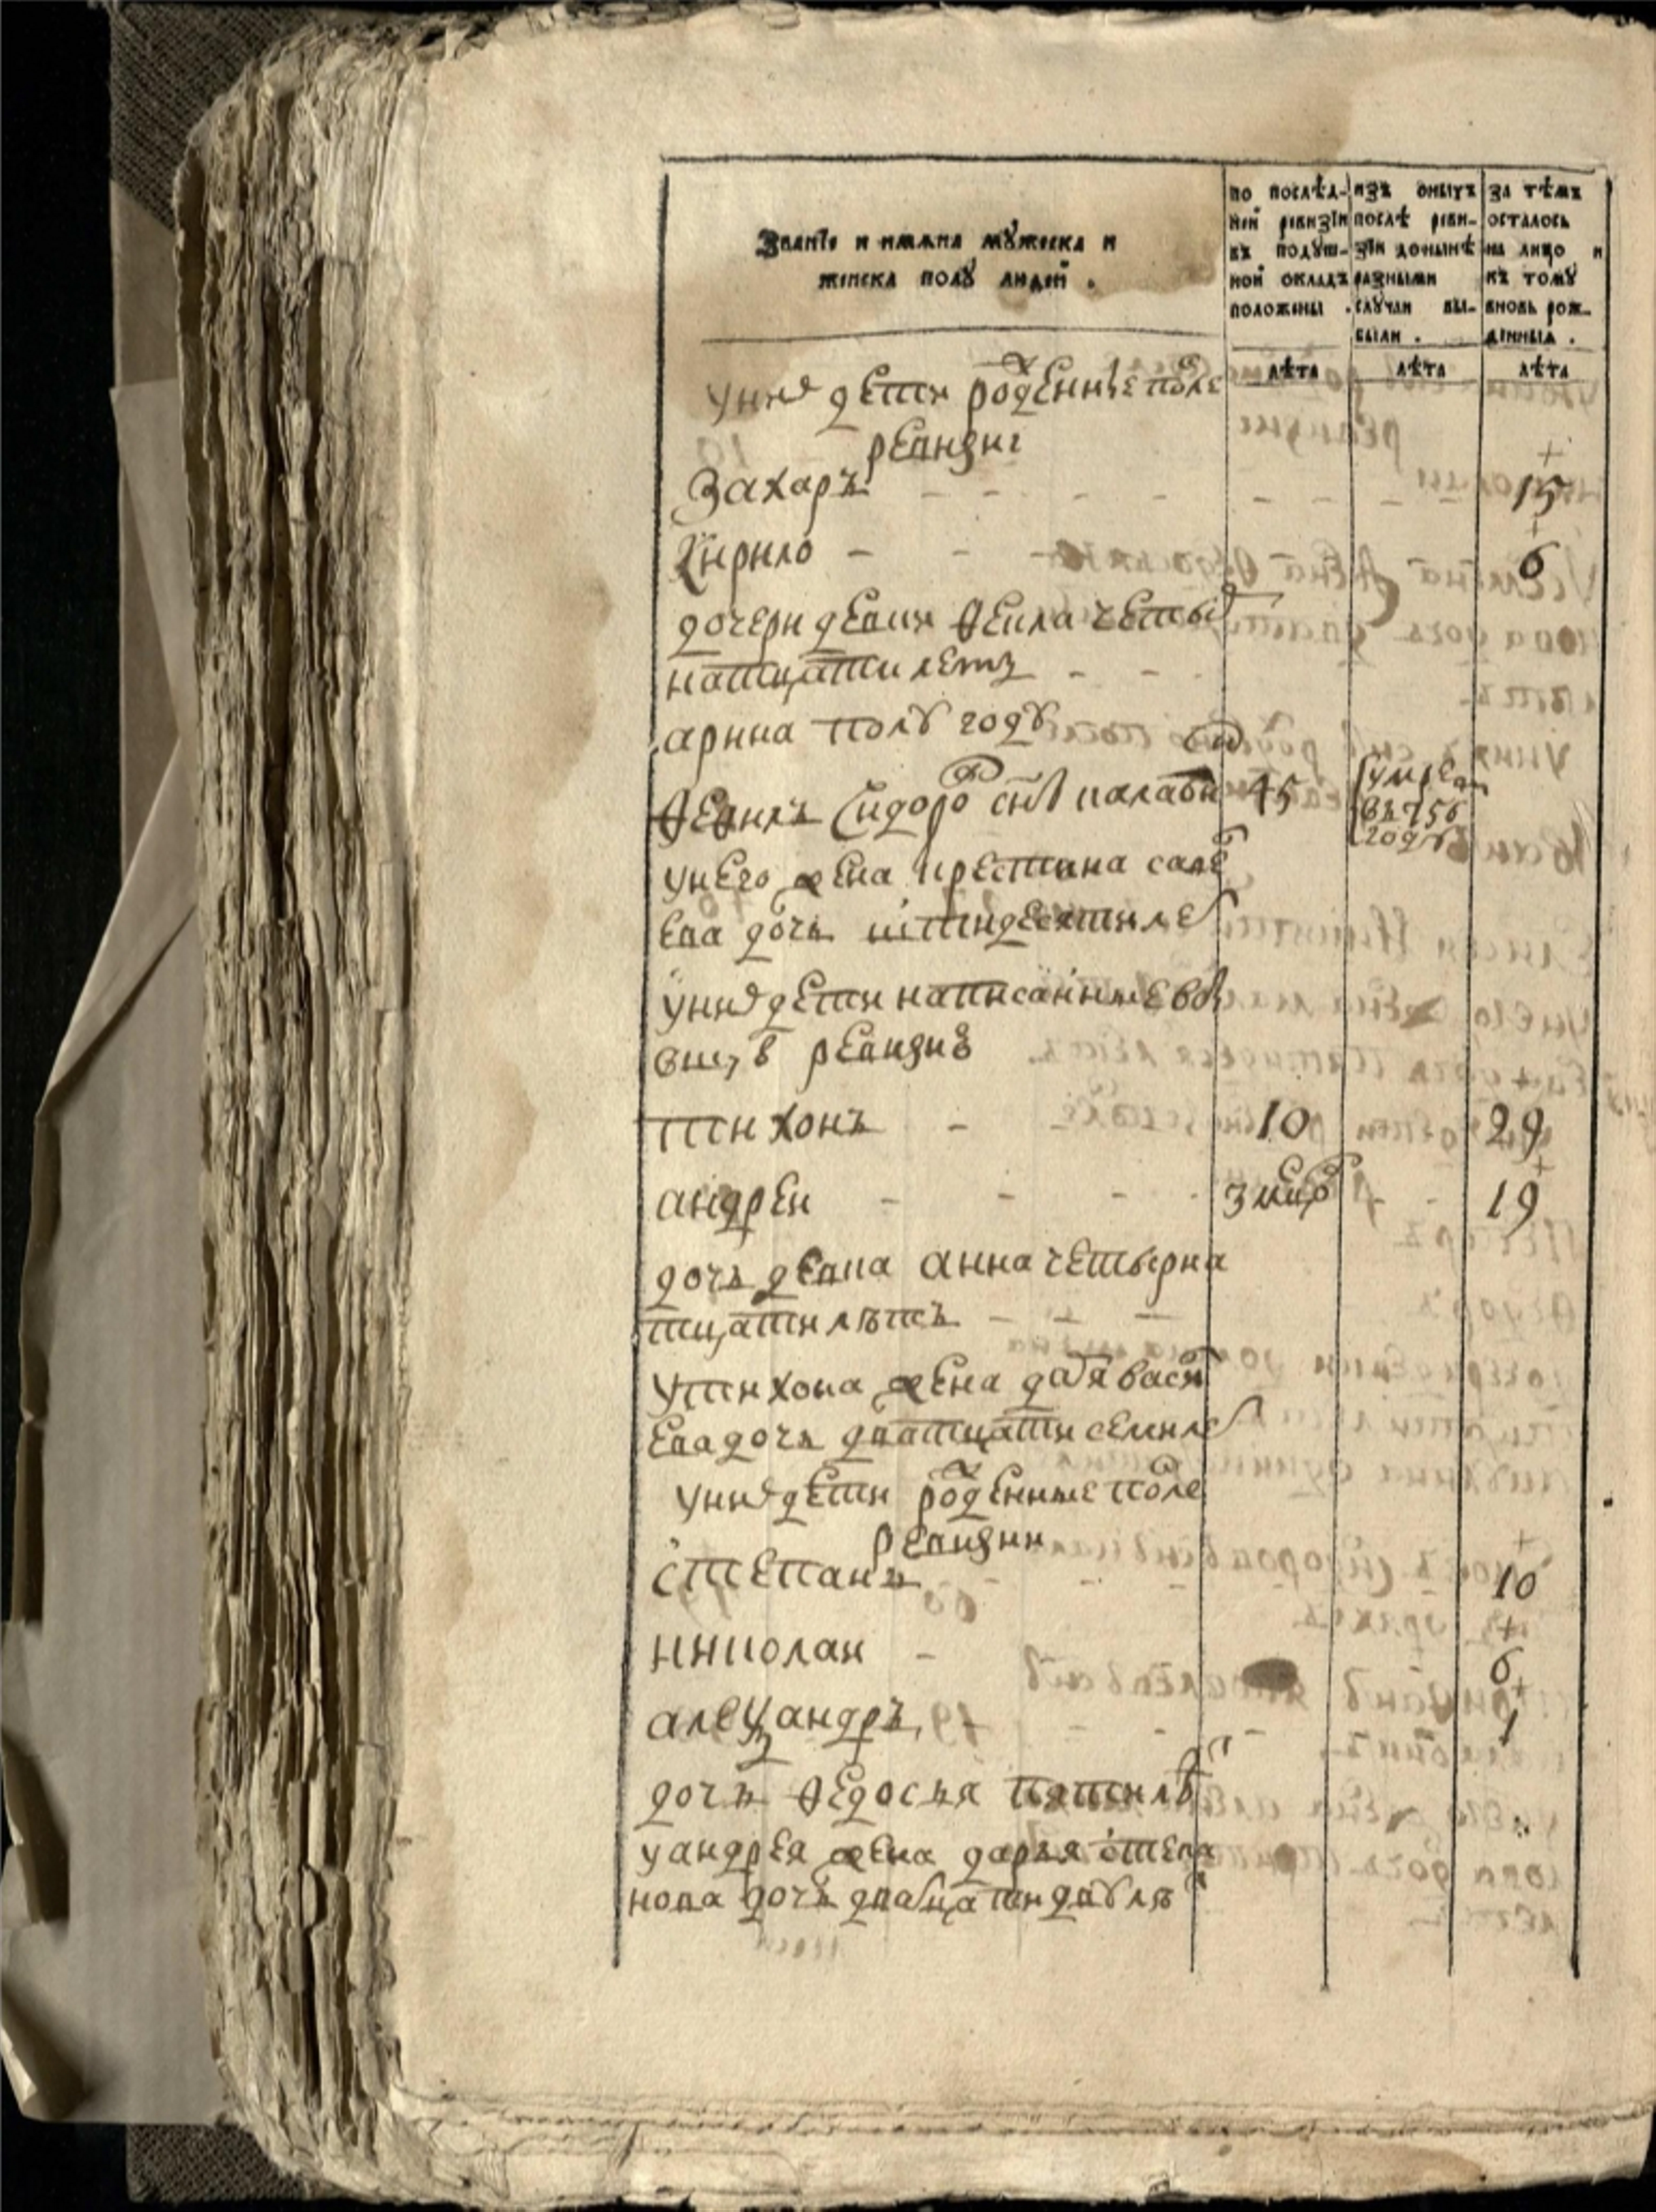 Званїе и имяна мꙋжеска и
женска полꙋ людей .
по послѣд-
ней ревизїи
въ подꙋш-
ной окладъ
положены .
изъ оныхъ
послѣ реви-
зїи донынѣ
разными
слꙋчаи вы-
были .
за тѣмъ
осталось
на лицо и
къ томꙋ
вновь рож-
денныя .
лѣта лѣта лѣта
у них дети рожденные после
ревизиі
Захаръ - - - - - - - 15
Кирило - - - 6
дочери девки Ѳекла четыр
натцати летъ - -
арина полꙋ годꙋ
Ѳедилъ Сидоровъ снъ 45 умре
въ 756
годꙋ
у него жена крестина саве
ева дочь шти десяти лет
у них дети написанные в
ревизиі
тихонъ - 10 29
андреи - - - 3 19
дочь девка анна четырна
тцати лѣтъ - - -
у тихона жена дарья васи
ева дочь дватцати семи лет
у них дети рожденные после
ревизии
степанъ - - - 10
николаи - 6
алеѯандръ 1
дочь Ѳедосья пяти лѣт
у андрея жена дарья степа
нова дочь дватцати двꙋ лѣт